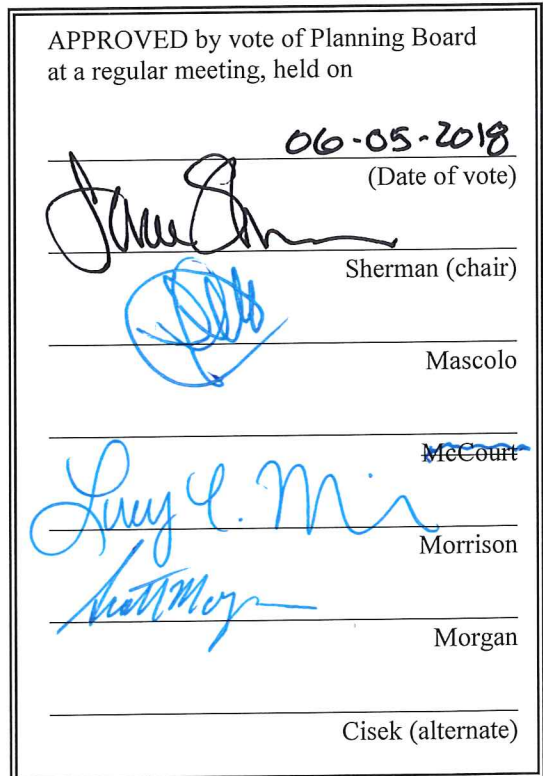 APPROVED by vote of Planning Board
at a regular meeting, held on
06-05-2018
(Date of vote)
Sherman (chair)
Mascolo
McCourt
Lucy C. M
Morrison
Scott Morgan
Morgan
Cisek (alternate)